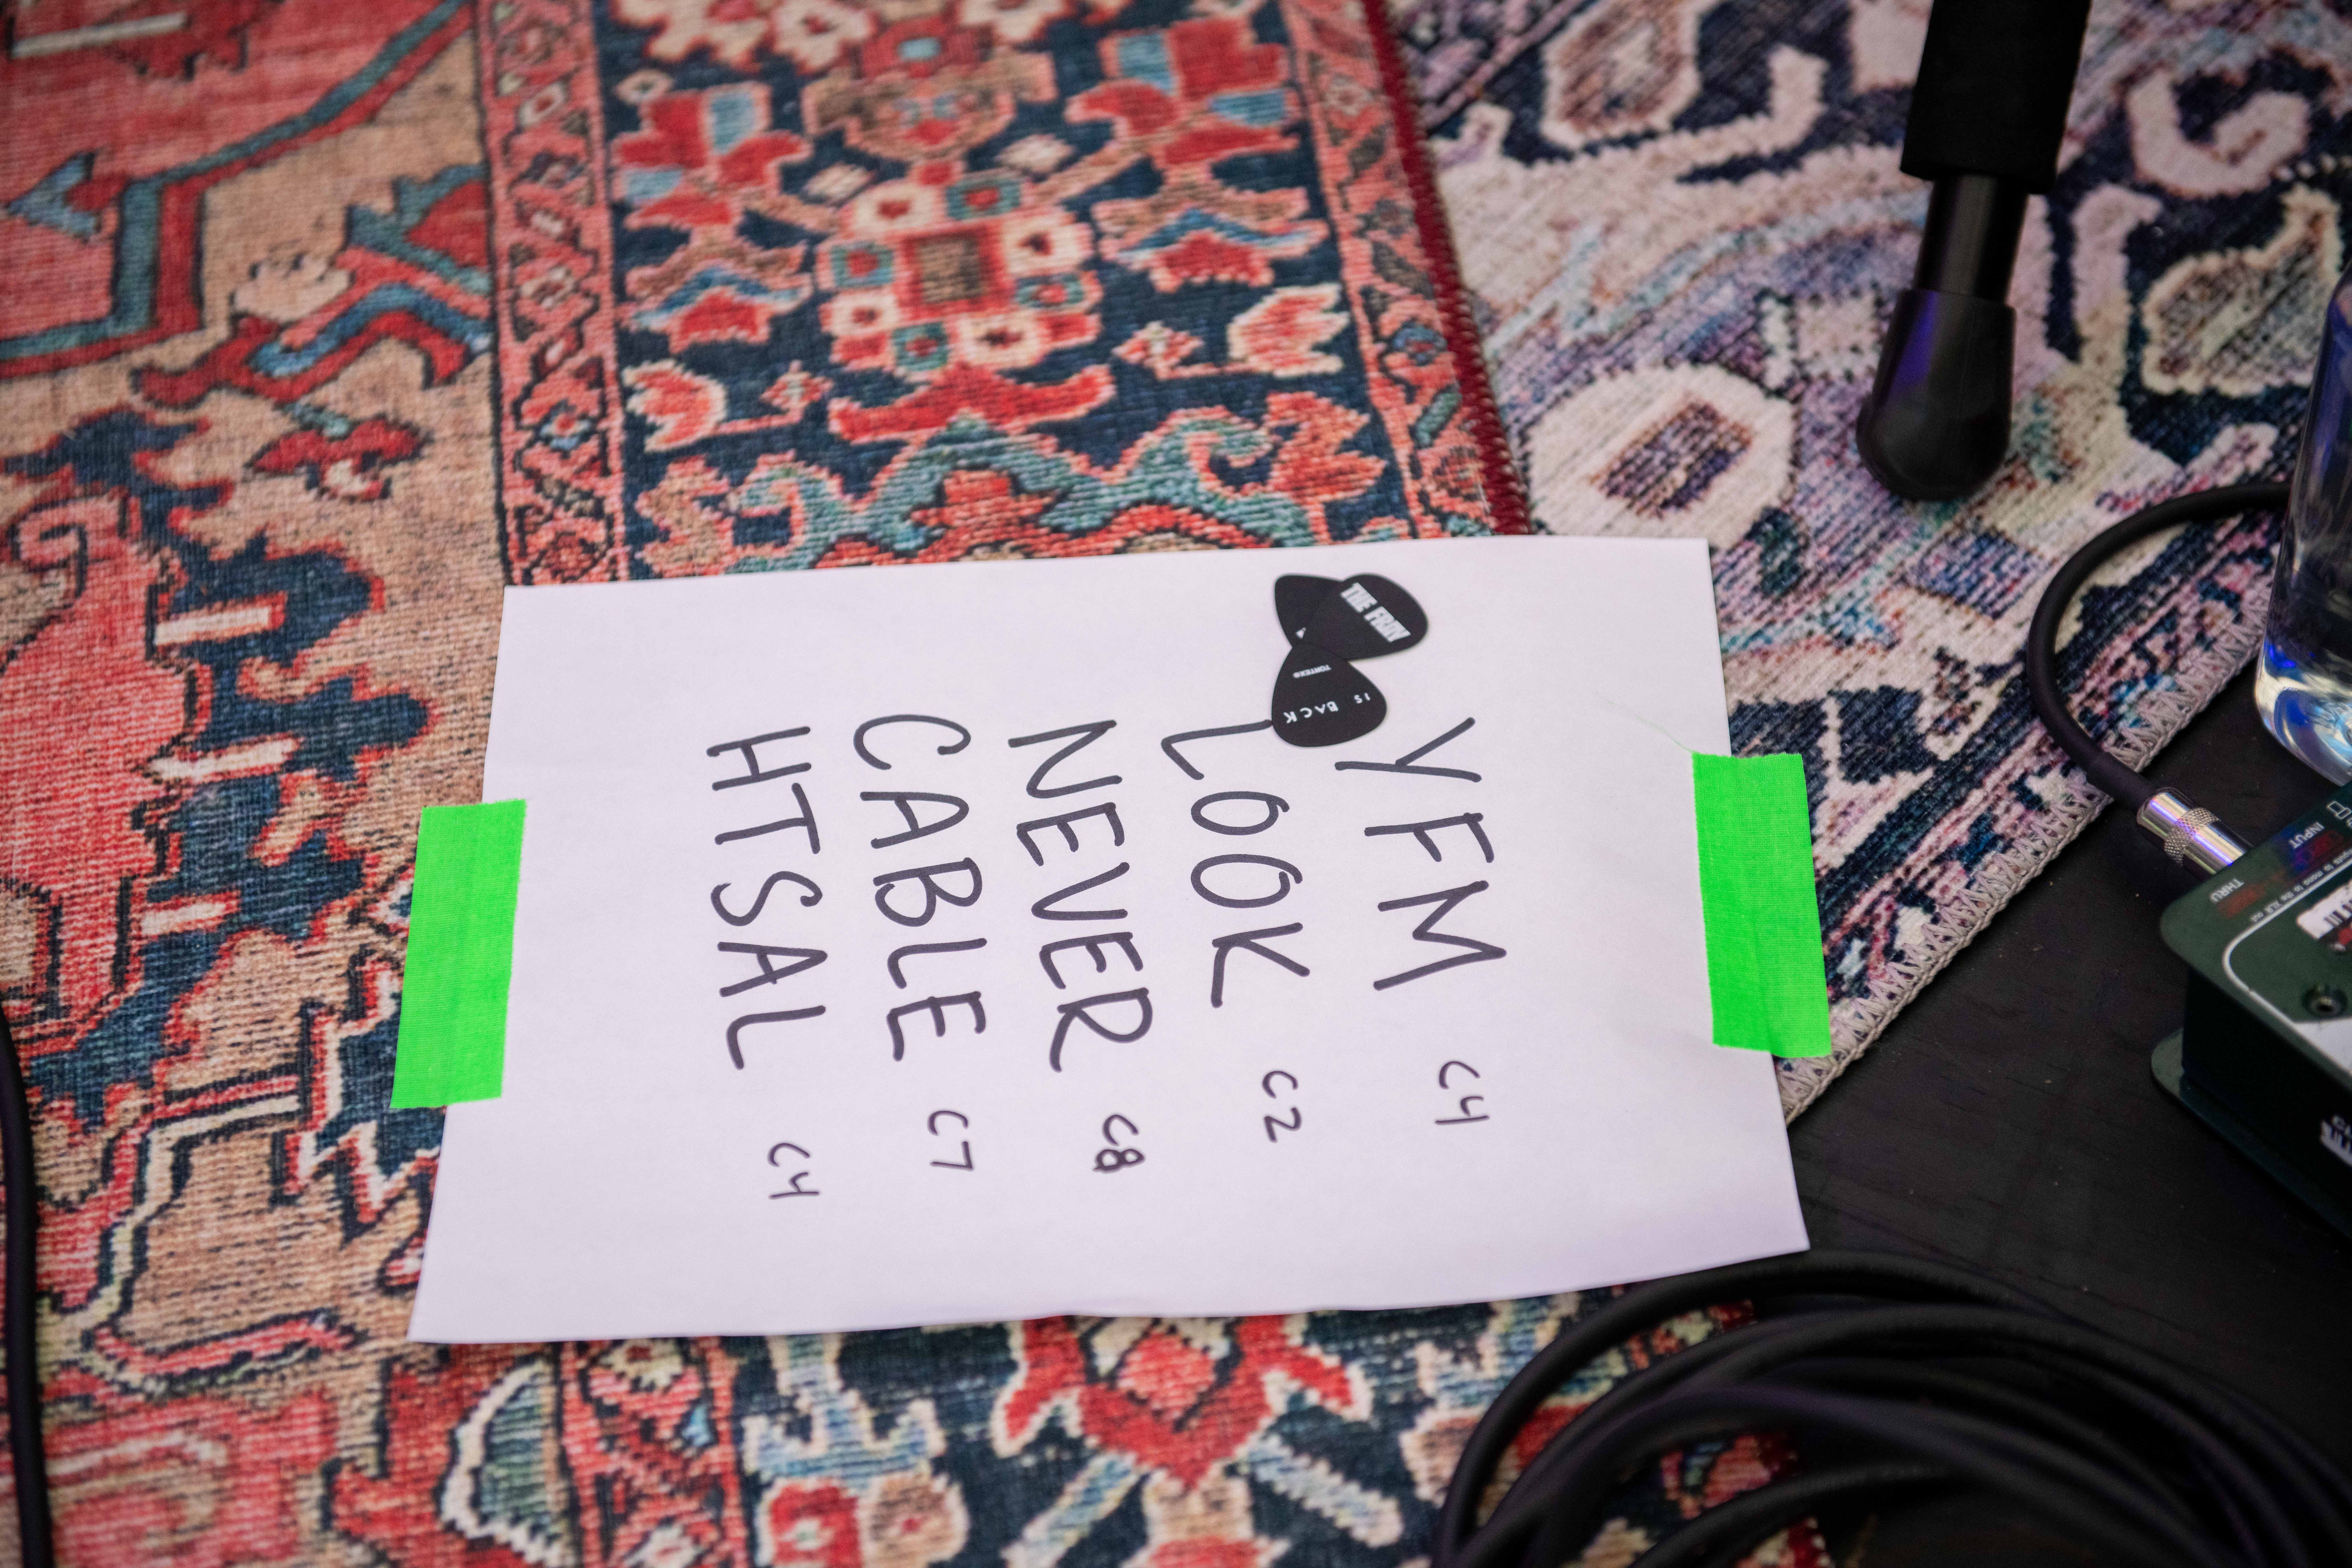 YFM C4
LOOK C2
NEVER C8
CABLE C7
HTSAL C4
THE FRAY
IS BACK
TORTEX®
INPUT
THRU